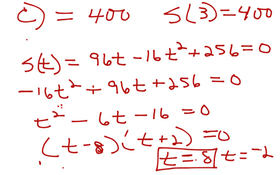 c) = 400 S(3) = 400
S(t) = 96t - 16t² + 256 = 0
-16t² + 96t + 256 = 0
t² - 6t - 16 = 0
(t - 8)(t + 2) = 0
t = 8 t = -2